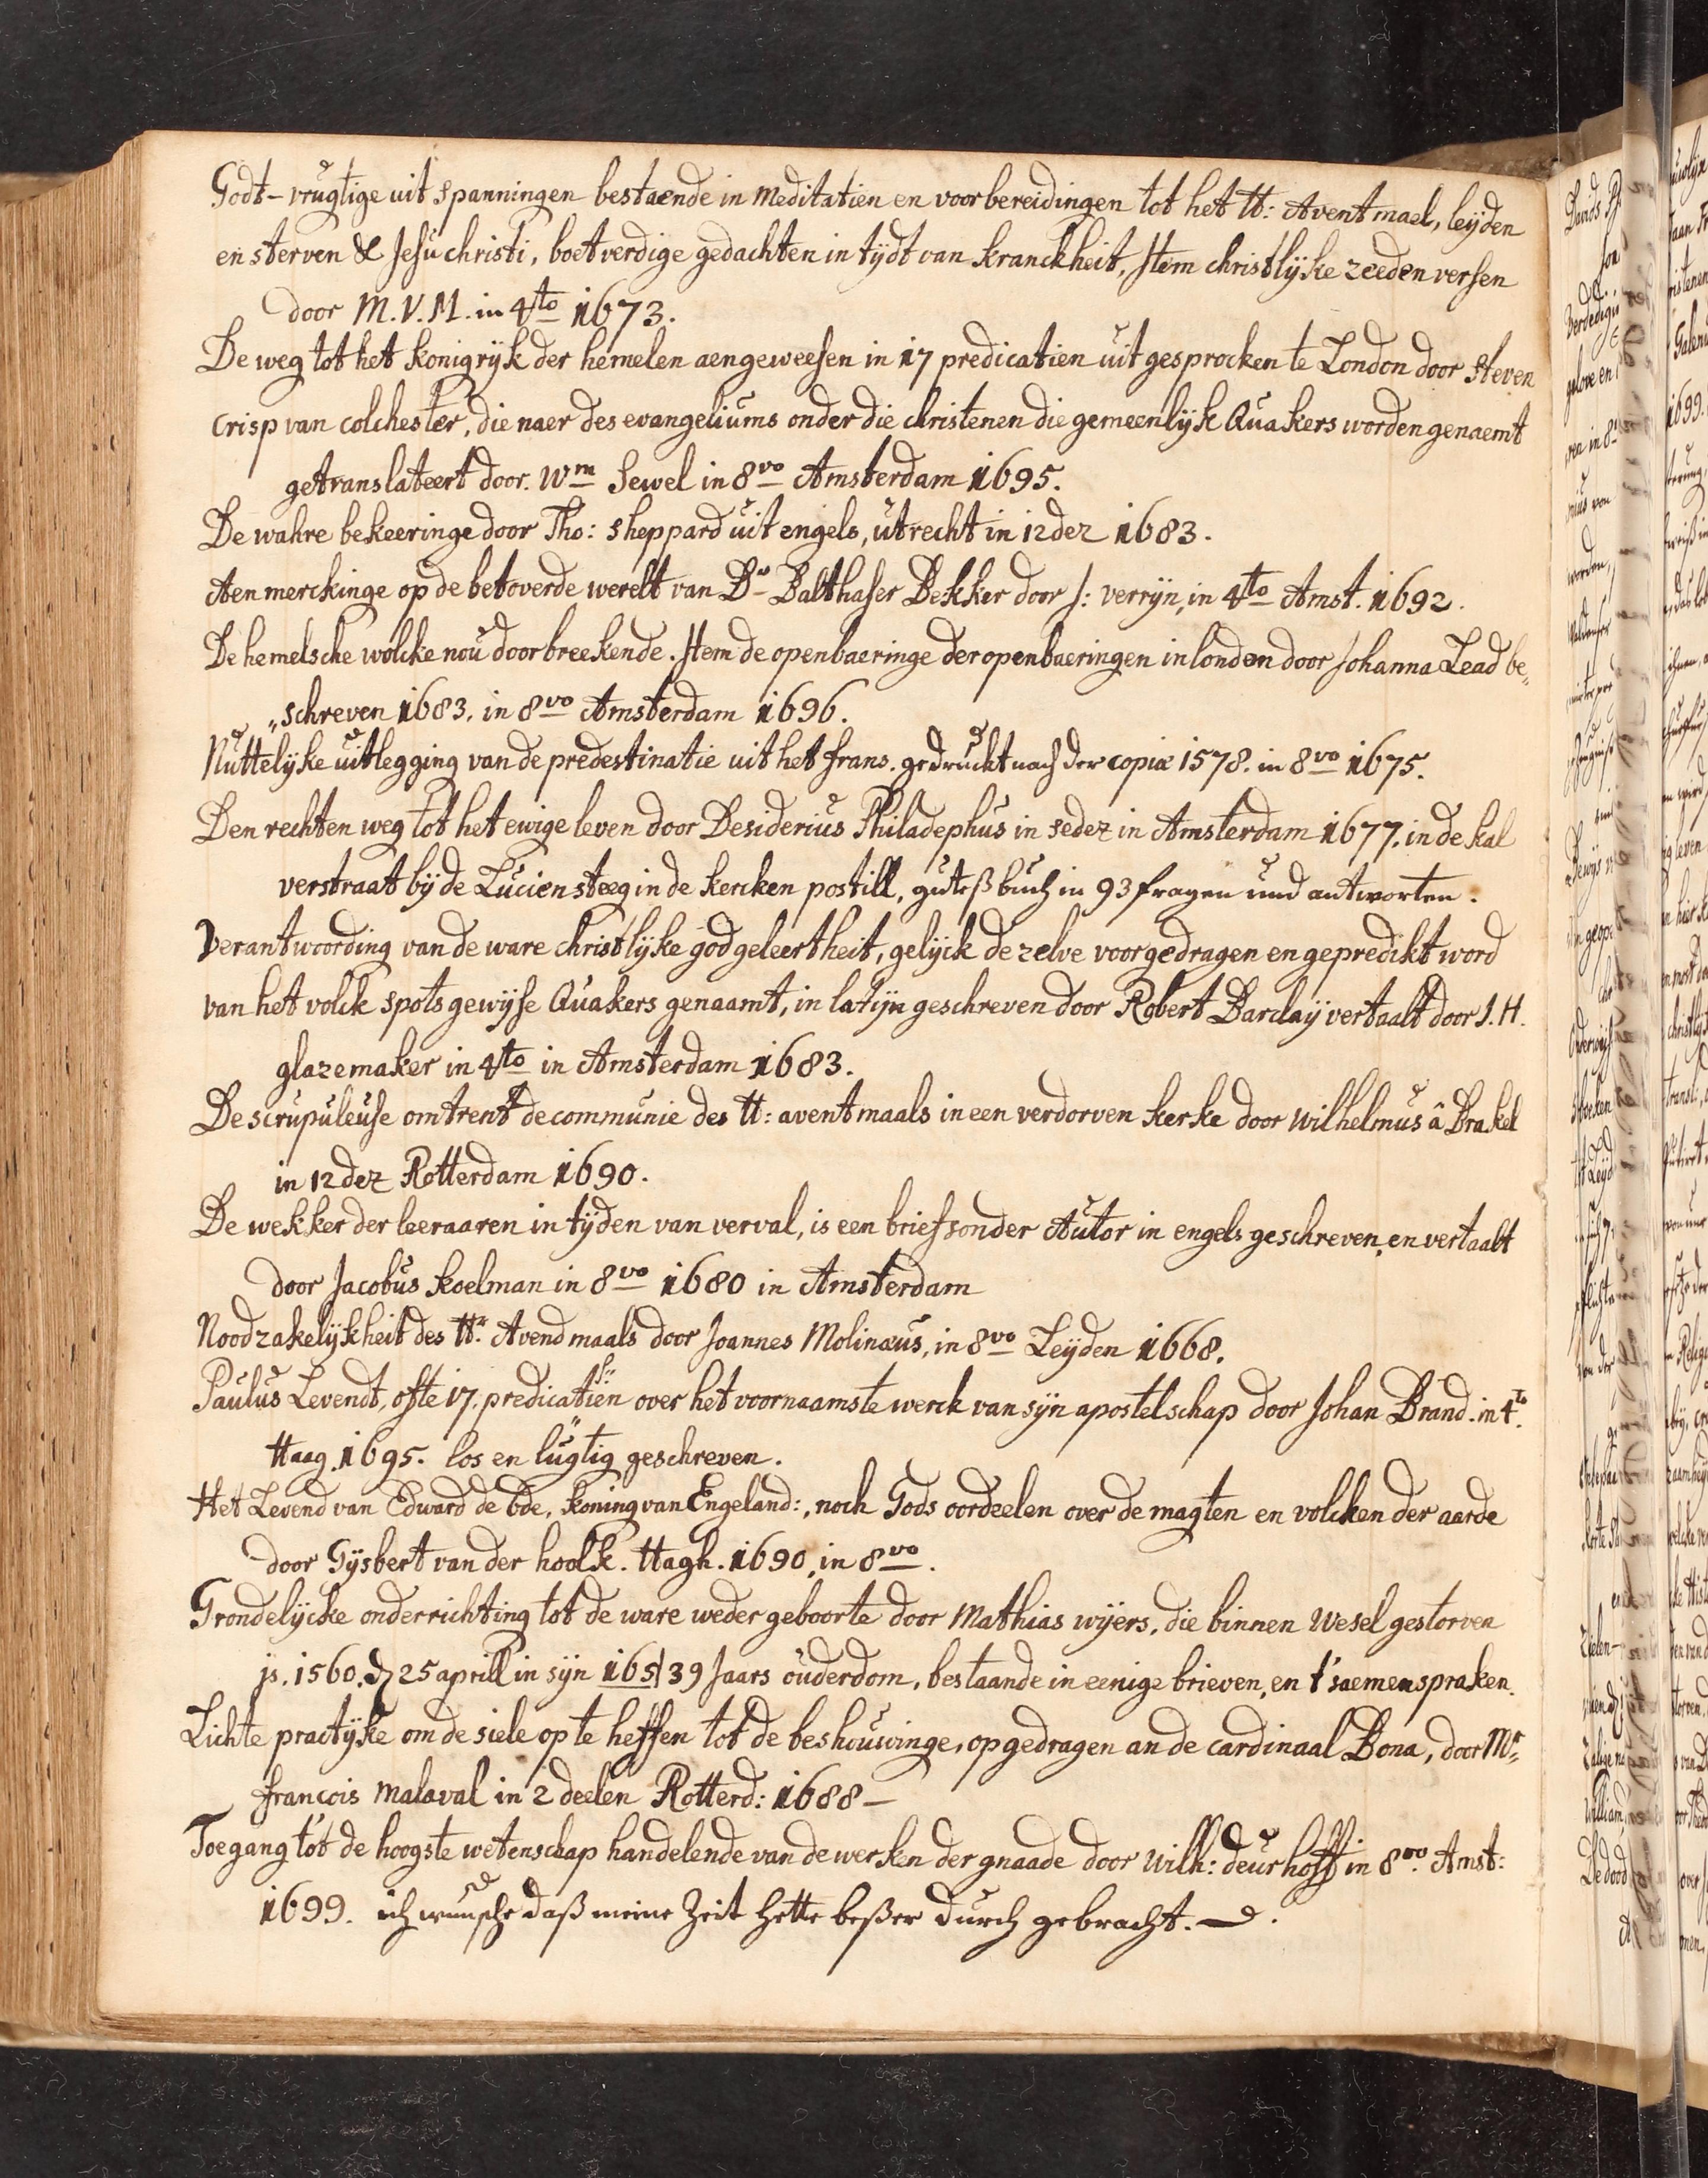 Godt-vrugtige uit spanningen bestaende in Meditatien en voorbereidingen tot het H: Aventmael, leyden
en sterven & Jesu christi, boetverdige gedachten in tydt van kranckheit, Item christlyke zeeden versen
door M.V.M. in 4to 1673.
De weg tot het konigryk der hemelen aengeweesen in 17 predicatien uit gesprocken te London door Steven
Crisp van Colchester, die naer des evangeliums onder die christenen die gemeenlyk Quakers worden genaemt
getranslateert door. Wm Sewel in 8vo Amsterdam 1695.
De wahre bekeeringe door Tho: Sheppard uit engels, utrecht in 12dez 1683.
Aenmerckinge op de betoverde werelt van Ds Balthaser Bekker door J: verryn, in 4to Amst. 1692.
De hemelsche wolcke nou doorbreekende. Item de openbaeringe der openbaeringen in london door Johanna Lead be„
„schreven 1683. in 8vo Amsterdam 1696.
Nuttelyke uitlegging van de predestinatie uit het frans. gedruckt nach der copiæ 1578. in 8vo 1675.
Den rechten weg tot het ewige leven door Desiderius Philadephus in sedez in Amsterdam 1677. in de kal
verstraat by de Lucien steeg in de kercken postill, gutes buch in 93 fragen und antworten.
Verantwoording van de ware christlyke godgeleertheit, gelyck dezelve voorgedragen en gepredikt word
van het volck spots gewyse Quakers genaamt, in latyn geschreven door Robert Barclay vertaalt door J.H.
glazemaker in 4to in Amsterdam 1683.
De scrupuleuse omtrent de communie des H: aventmaals in een verdorven kerke door Wilhelmus â Brakel
in 12dez Rotterdam 1690.
De wekker der leeraaren in tyden van verval, is een brief sonder Autor in engels geschreven, en vertaalt
door Jacobus Koelman in 8vo 1680 in Amsterdam
Noodzakelykheit des H. Avendmaals door Joannes Molinæus, in 8vo Leyden 1668.
Paulus Levendt, ofte 17. predicatiën over het voornaamste werck van syn apostelschap door Johan Brand. in 4to.
Haag. 1695. los en lugtig geschreven.
Het Levend van Edward de 6de, Koning van Engeland:, noch Gods oordeelen over de magten en volcken der aarde
door Gysbert van der hoolk. Hagh. 1690. in 8vo.
Grondelycke onderrichting tot de ware weder geboorte door Mathias wyers, die binnen Wesel gestorven
is. 1560. 25 aprill in syn 39 Jaars ouderdom, bestaande in eenige brieven, en t'saemenspraken.
Lichte practyke om de siele op te heffen tot de beshouwinge, opgedragen an de cardinaal Bona, door Mr
francois Malaval in 2 deelen Rotterd: 1688 —
Toegang tot de hoogste wetenschap handelende van de werken der gnaade door Wilh: deurhoff in 8vo. Amst:
1699. ich wunsche daß meine Zeit hette beßer durch gebracht.